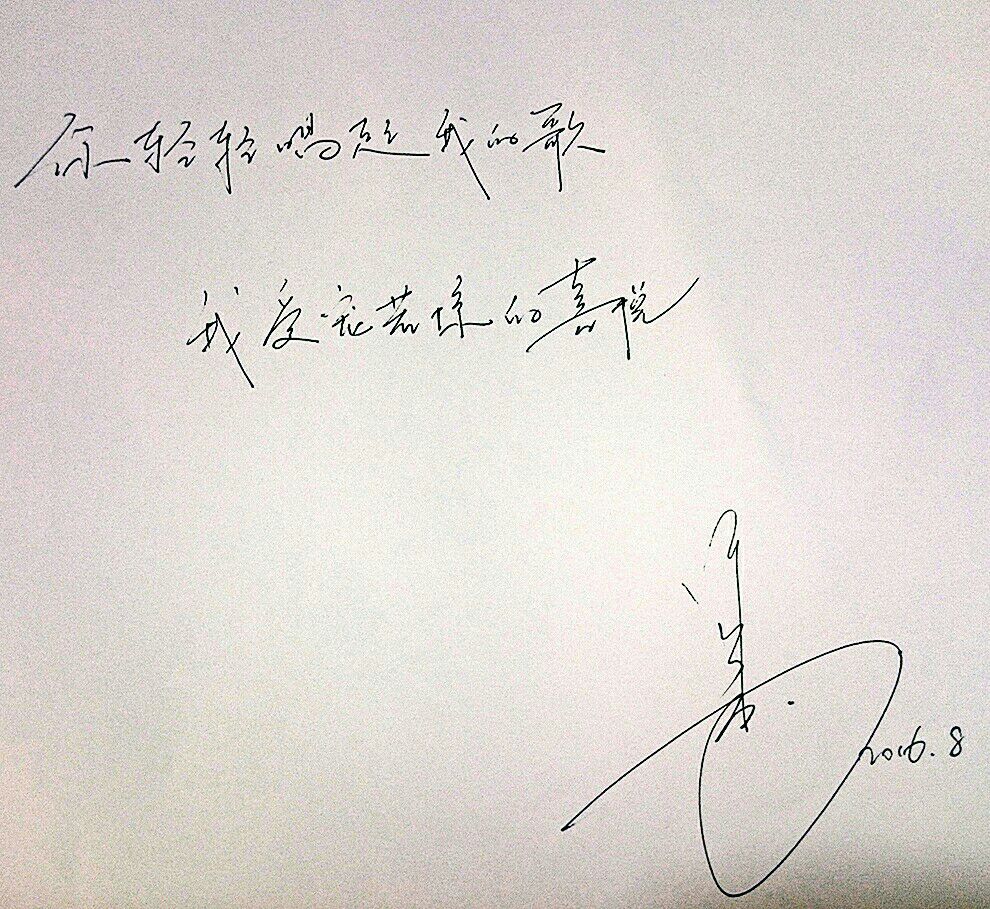 你轻轻唱起我的歌
我受宠若惊的喜悦
2016.8